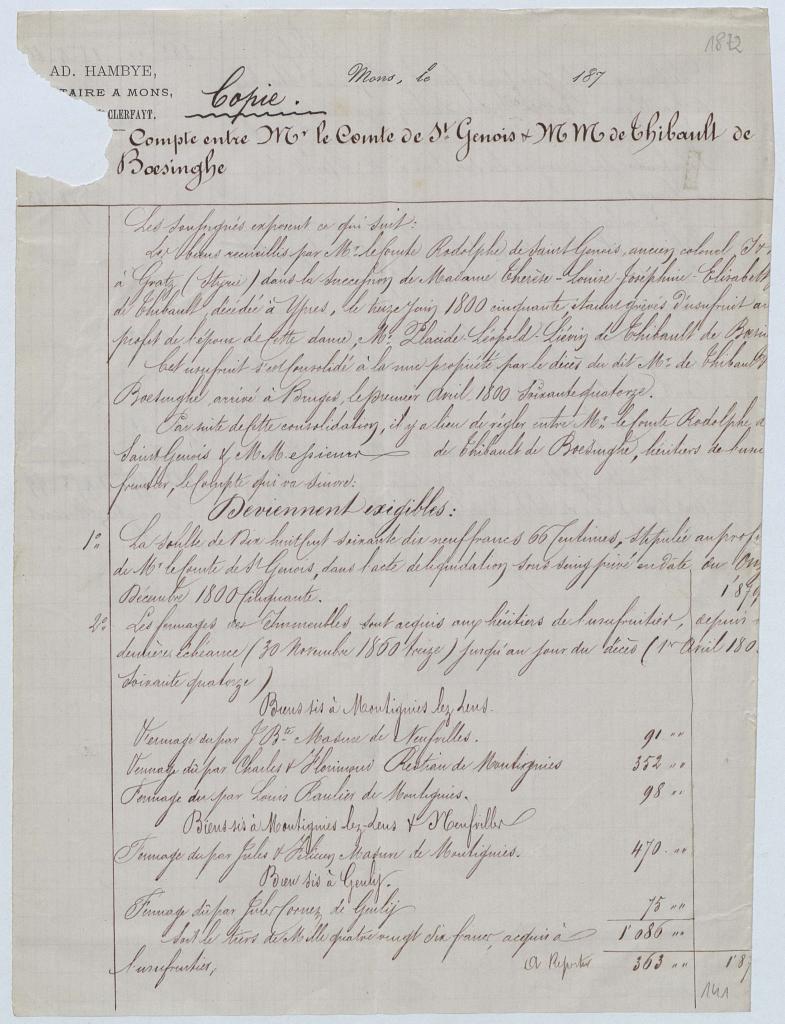 1872
AD. HAMBYE,
TAIRE A MONS,
CLERFAYT.
Mons, le 187
Copie.
Compte entre Mr le Comte de St Genois & MM de Thibault de
Boesinghe
Les soussignés exposent ce qui suit:
Les biens recueillis par Mr. le Comte Rodolphe de Saint Genois, ancien colonel,
à Gratz (Styrie) dans la succession de Madame Thérèse-Louise-Joséphine-Elisabeth
de Thibault, décédée à Ypres, le treize juin 1800 cinquante étaient grévés d'usufruit au
profit de l'époux de cette dame, Mr. Placide-Léopold-Liévin de Thibault de Boesin
Cet usufruit s'est consolidé à la nue propriété par le décès du dit Mr. de Thibault
Boesinghe, arrivé à Bruges, le premier avril 1800 soixante quatorze.
Par suite de cette consolidation, il y a lieu de régler entre Mr. le Comte Rodolphe d
Saint Genois & M.Messieurs de Thibault de Boesinghe, héritiers de l'usu
fruitier, le compte qui va suivre:
Deviennent exigibles:
1o La soulte de Dix huit cent soixante dix neuf francs 66 centimes, stipulée au prof
de Mr. le Comte de St Genois, dans l'acte de liquidation sous seing privé en date du On
Décembre 1800 cinquante. 1'879
2o Les fermages des Immeubles sont acquis aux héritiers de l'usufruitier, depuis
dernière échéance (30 Novembre 1860 treize) jusqu'au jour du décès (1er Avril 180
soixante quatorze)
Biens sis à Montignies lez-Lens.
Fermage dû par J. Bte Masure de Neufvilles. 91 "
Fermage dû par Charles & Florimond Restian de Montignies 352 "
Fermage dû par Louis Raulier de Montignies. 98 "
Biens sis à Montignies-lez-Lens & Neufvilles
Fermage dû par Jules & Félicien Masure de Montignies. 470 "
Bien sis à Genly.
Fermage dû par Jules Cornez de Genly 75 "
Soit le tiers de Mille quatre vingt six francs, acquis à 1'086 "
l'usufruitier, A Reporter 363 " 1'87
141